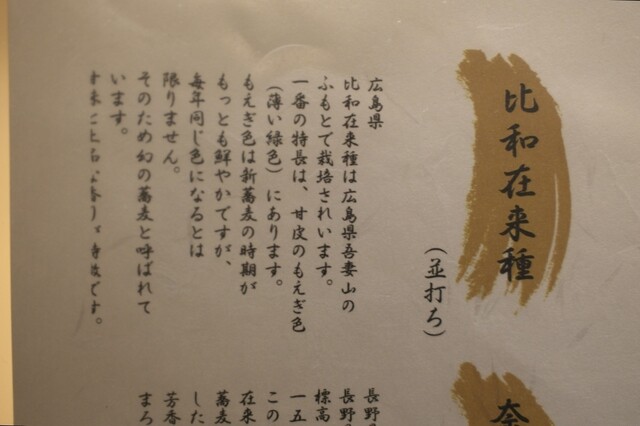 比和在来種
(並打ち)
広島県
比和在来種は広島県吾妻山の
ふもとで栽培されいます。
一番の特長は、甘皮のもえぎ色
(薄い緑色)にあります。
もえぎ色は新蕎麦の時期が
もっとも鮮やかですが、
毎年同じ色になるとは
限りません。
そのため幻の蕎麦と呼ばれて
います。
です。
奈
長野
長野
標高
一五
この
在来
蕎麦
した
芳香
まろ